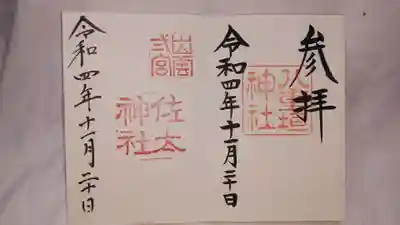 参拝
八重垣
神社
令和四年十一月二十日
出雲
弐宮
佐太
神社
令和四年十一月二十日